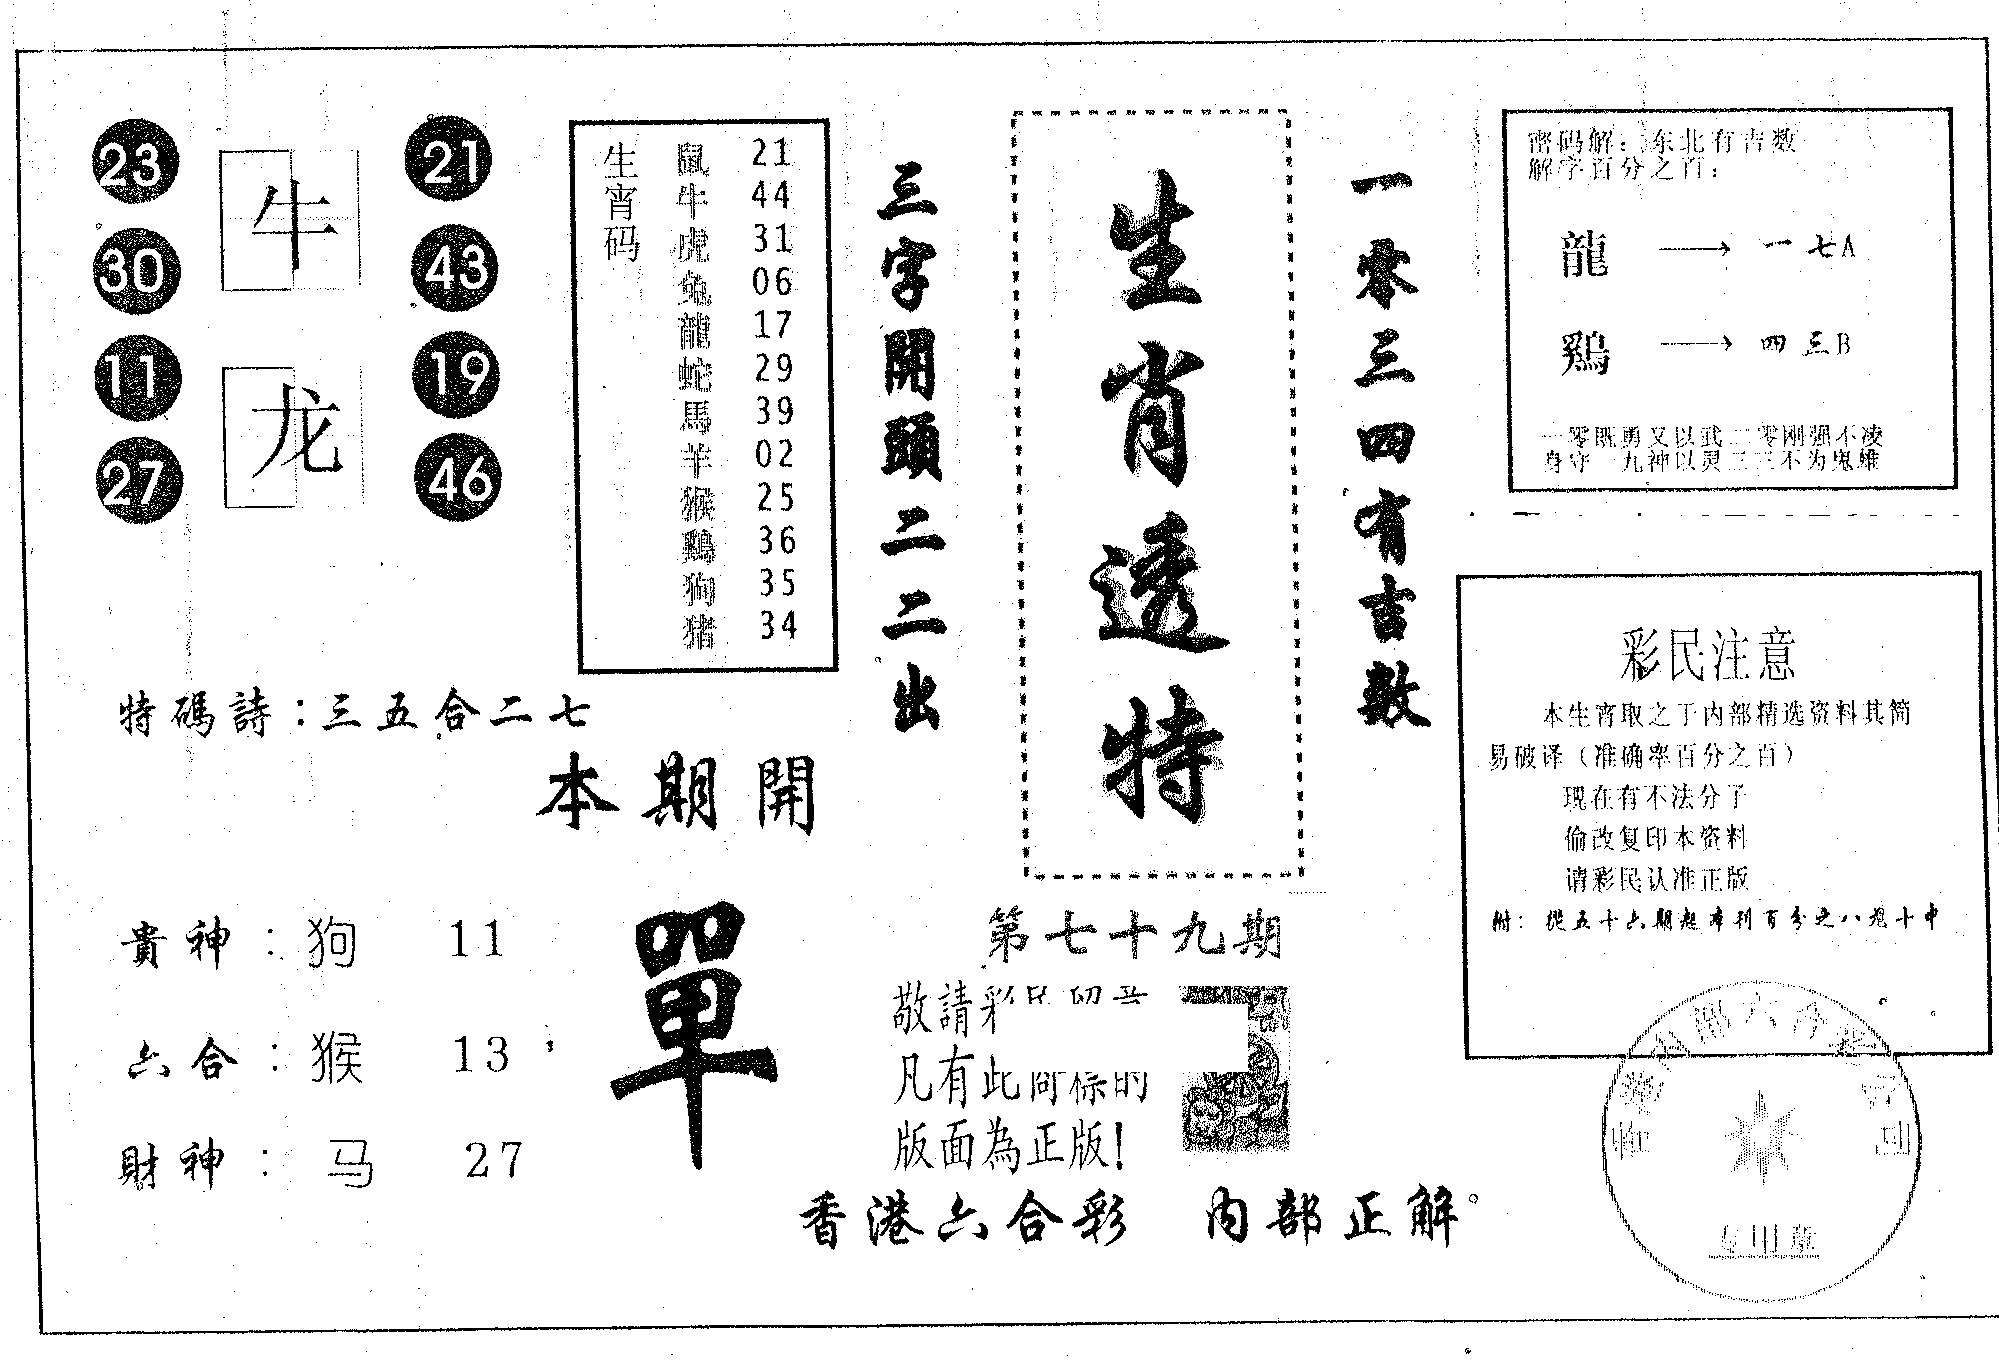 23
30
11
27
牛
龙
21
43
19
46
生宵码
鼠 21
牛 44
虎 31
兔 06
龍 17
蛇 29
馬 39
羊 02
猴 25
鷄 36
狗 35
猪 34
三字開頭二二出
生肖透特
一零三四有吉数
密码解：东北有吉数
解字百分之百：
龍 → 一七A
鷄 → 四三B
一零既勇又以武二零刚强不凌
身守一九神以灵三三不为鬼雄
特碼詩：三五合二七
本期開
單
貴神：狗 11
六合：猴 13
財神：马 27
第七十九期
敬請彩民留意
凡有此商標的
版面為正版！
香港六合彩 内部正解。
彩民注意
本生宵取之于内部精选资料其简
易破译（准确率百分之百）
现在有不法分子
偷改复印本资料
请彩民认准正版
附：從五十六期起本刊百分之八九十中
专用章